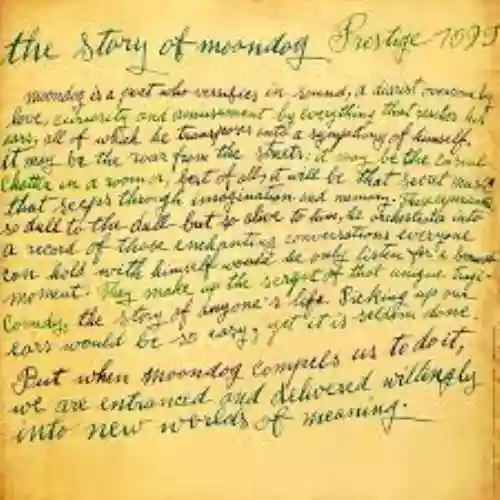 the story of moondog Prestige 1099
moondog is a poet who versifies in sound, a diarist overcome by
love, curiosity and amusement by everything that reaches his
ears, all of which he transposes into a symphony of himself.
it may be the roar from the streets: it may be the casual
chatter in a room or, best of all, it will be that secret music
that seeps through imagination and memory. These elements
so dull to the dull but so alive to him, he orchestrates into
a record of those enchanting conversations everyone
can hold with himself would he only listen for a
moment. They make up the script of that unique tragi-
comedy, the story of anyone's life. Picking up our
ears would be so easy, yet it is seldom done.
But when moondog compels us to do it,
we are entranced and delivered willingly
into new worlds of meaning.